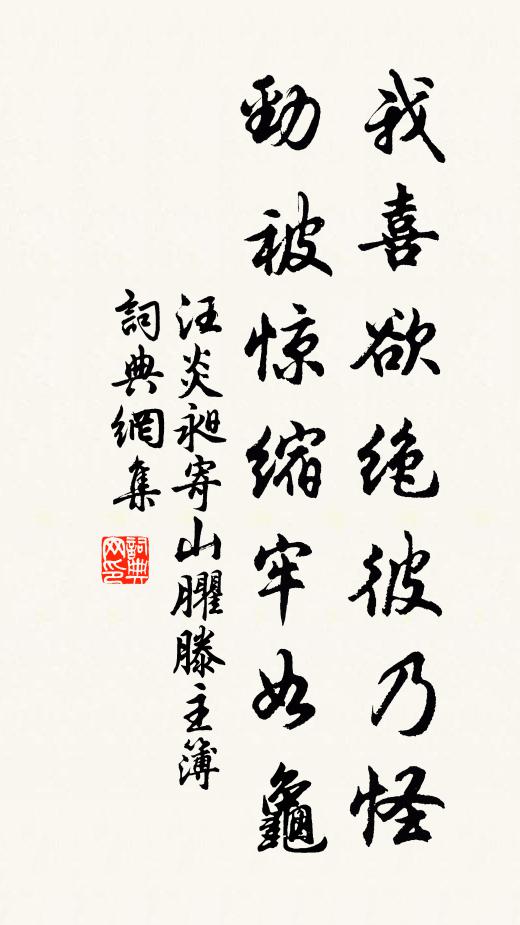 我喜欲绝彼乃怪
劲被惊缩牢如龜
汪炎昶寄山臞滕主簿
詞典網集
詞典
网